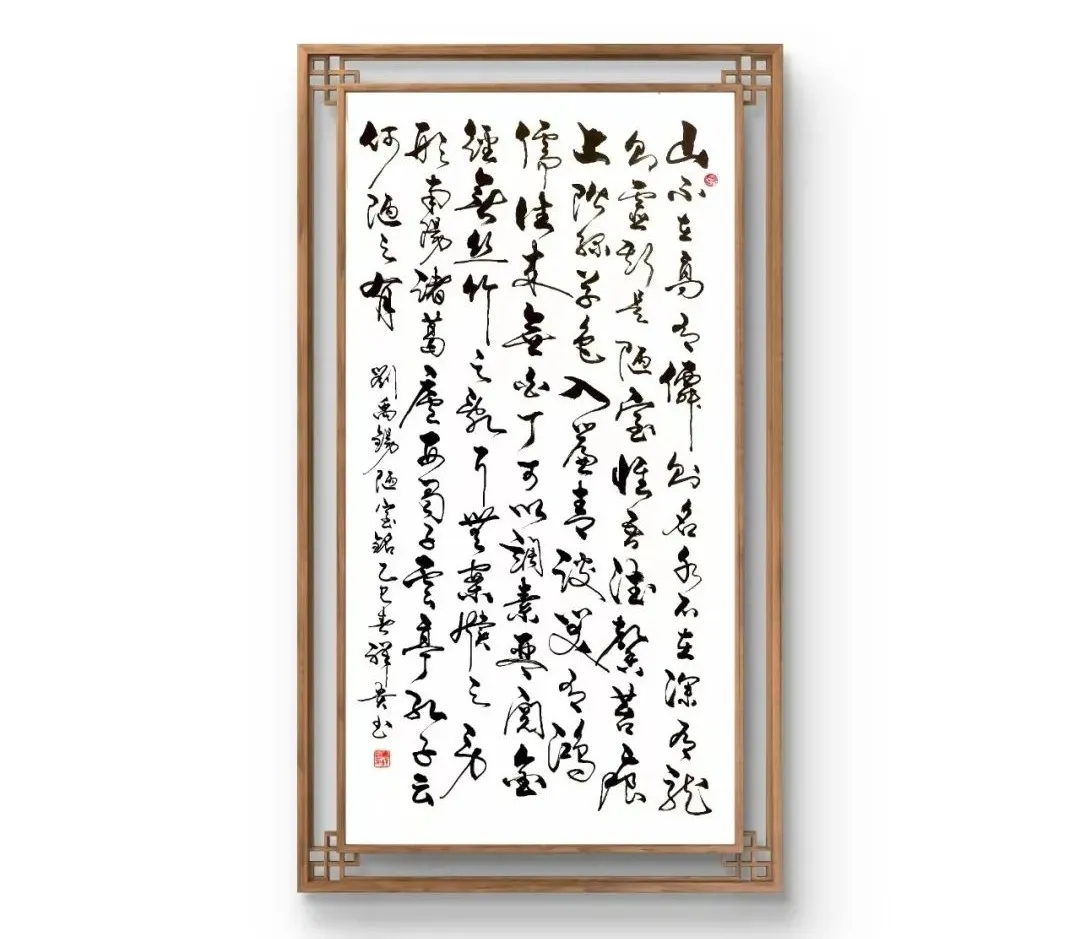 山不在高有僊则名水不在深有龍
则靈斯是陋室惟吾德馨苔痕
上階綠草色入簾青談笑有鴻
儒往来無白丁可以調素琴閱金
經無丝竹之亂耳無案牘之劳
形南陽諸葛廬西蜀子雲亭孔子云
何陋之有 劉禹錫陋室銘乙巳春祥书